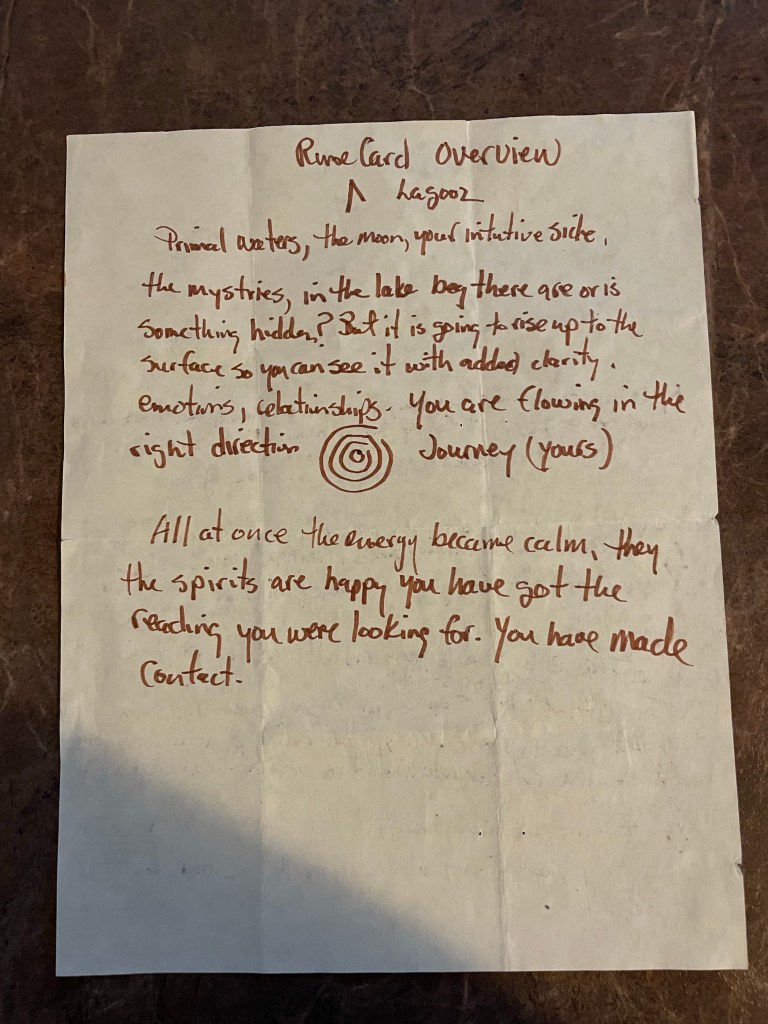 Rune Card Overview
ᛚ Lagooz
Primal waters, the moon, your intutive side.
the mystries, in the lake bog there are or is
something hidden? But it is going to rise up to the
surface so you can see it with added clarity.
emotions, relationships. You are flowing in the
right direction Journey (yours)
All at once the energy became calm, they
the spirits are happy you have got the
reading you were looking for. You have made
contact.